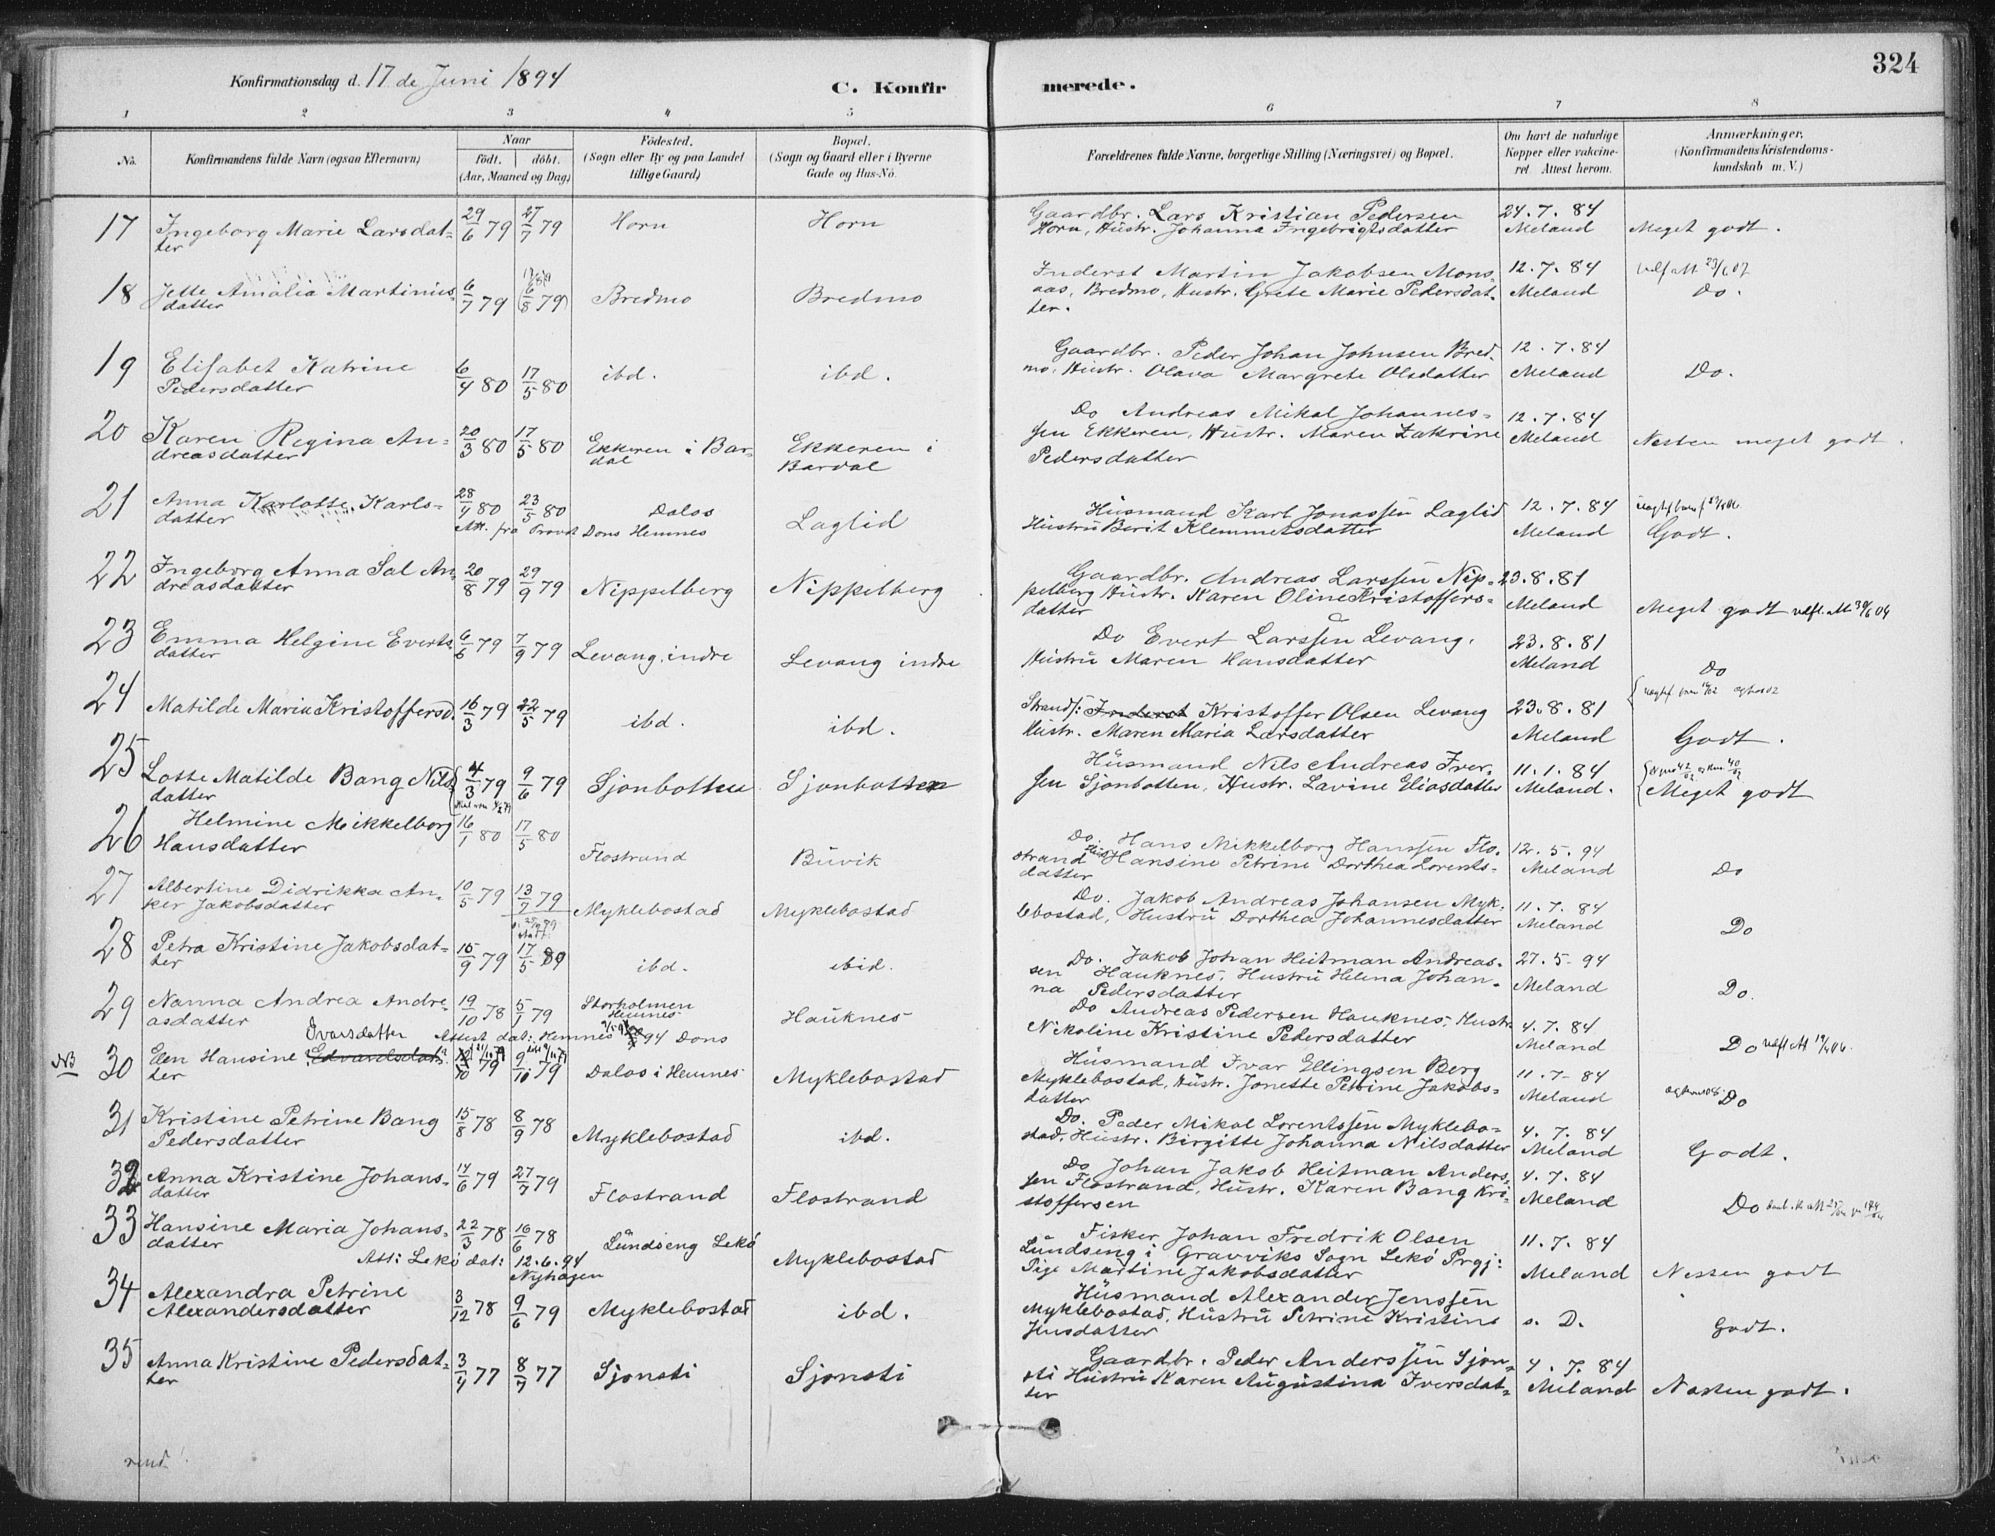 324
Konfirmationsdag d. 17 de Juni 1894
C. Konfirmerede.
1 2 3 4 5 6 7 8
No.
Konfirmandens fulde Navn (ogsaa Efternavn)
Naar
födt. döbt.
(Aar, Maaned og Dag)
Födested.
(Sogn eller By og paa Landet
tillige Gaard)
Bopæl.
(Sogn og Gaard eller i Byerne
Gade og Hus-No.
Forældrenes fulde Navne, borgerlige Stilling (Næringsvei) og Bopæl.
Om havt de naturlige
Kopper eller vakcine-
ret. Attest herom.
Anmærkninger.
(Konfirmandens Kristendoms-
kundskab m. V.)
17 Ingeborg Marie Larsdat-
ter
29/6 79 27/7 79 Horn Horn
Gaardbr. Lars Kristian Pedersen
Horn, Hustr. Johanna Ingebrigtsdatter
24.7.84
Meland
Meget godt.
18 Jette Amalia Martinus-
datter
6/7 79 6/8 79 Bredmo Bredmo
Inderst Martin Jakobsen Mons-
aas, Bredmo, Hustr. Grete Marie Pedersdat-
ter.
12.7.84
Meland
Do.
19 Elisabet Katrine
Pedersdatter
6/4 80 17/5 80 ibd. ibd.
Gaardbr. Peder Johan Johnsen Bred-
mo, Hustr. Olava Margrete Olsdatter
12.7.84
Meland
Do.
20 Karen Regina An-
dreasdatter
20/3 80 17/5 80 Ekkeren i Bar-
dal
Ekkeren i
Bardal
Do Andreas Mikal Johannes-
sen Ekkeren, Hustr. Maren Zakrine
Pedersdatter
12.7.84
Meland
Nesten meget godt.
21 Anna Karlotte Karls-
datter
28/4 80 23/5 80 Dalos
Att. fra Provst Dons Hemnes
Laglid
Husmand Karl Jonassen Laglid
Hustru Berit Klemmetsdatter
12.7.84
Meland
Godt.
22 Ingeborg Anna Sal An-
dreasdatter
20/8 79 29/9 79 Nippelberg Nippelberg
Gaardbr. Andreas Larssen Nip-
pelberg Hustr. Karen Oline Kristoffers-
datter
23.8.81
Meland
Meget godt
23 Emma Helgine Everts-
datter
6/6 79 7/9 79 Levang, indre Levang indre
Do Evert Larssen Levang.
Hustru Maren Hansdatter
23.8.81
Meland
Do
24 Matilde Maria Kristoffersd.
16/3 79 22/5 79 ibd. ibd.
Strands. Inderst Kristoffer Olsen Levang
Hustr. Maren Maria Larsdatter
23.8.81
Meland
Godt.
25 Lotte Matilde Bang Nils-
datter
4/3 79 9/6 79 Sjonbotten Sjonbotten
Husmand Nils Andreas Iver-
sen Sjonbotten, Hustr. Lavine Eliasdatter
11.1.84
Meland.
Meget godt
26 Helmine Mikkelborg
Hansdatter
16/1 80 17/5 80 Flostrand Buvik
Do. Hans Mikkelborg Hanssen Flo-
strand Hustr. Hansine Petrine Dorthea Lorents-
datter
12.5.94
Meland
Do
27 Albertine Didrikka An-
ker Jakobsdatter
10/5 79 13/7 79 Myklebostad Myklebostad
Do. Jakob Andreas Johansen Myk-
lebostad, Hustru Dorthea Johannesdatter
11.7.84
Meland
Do
28 Petra Kristine Jakobsdat-
ter
15/9 79 17/5 80 ibd. ibid.
Do. Jakob Johan Heitman Andreas-
sen Hauknes, Hustru Helena Johan-
na Pedersdatter
27.5-94
Meland
Do.
29 Nanna Andrea Andre
asdatter
19/10 78 5/1 79 Storholmen
Hemnes
Attest dat: Hemnes 94 Dons
Hauknes
Do Andreas Pedersen Hauknes, Hustr.
Nikoline Kristine Pedersdatter
4.7.84
Meland
Do
NB
30 Elen Hansine Edvardsdat-
ter
Ivarsdatter
79 9/10 79 Dalos i Hemnes Myklebostad
Husmand Ivar Ellingsen Berg
Myklebostad, Hustr. Jonette Petrine Jakobs-
datter
11.7-84
Meland
Do
31 Kristine Petrine Bang
Pedersdatter
15/8 78 8/9 78 Myklebostad ibd.
Do. Peder Mikal Lorentssen Myklebo-
stad, Hustr. Birgitte Johanna Nilsdatter
4.7.84
Meland
Godt.
32 Anna Kristine Johans-
datter
14/6 79 27/7 79 Flostrand Flostrand
Do Johan Jakob Heitman Anders-
sen Flostrand, Hustr. Karen Bang Kri-
stoffersen
4.7.84
Meland
Do
33 Hansine Maria Johans-
datter
22/3 78 16/6 78 Lundseng Lekö
Att: Lekö dat: 12.6.94
Myklebostad
Fisker Johan Fredrik Olsen
Lundseng i Gravviks Sogn Lekö Prgj:
Pige Martine Jakobsdatter
11.7.84
Meland
Nesten godt
34 Alexandra Petrine
Alexandersdatter
3/12 78 9/6 79 Nyhagen
Myklebostad ibd.
Husmand Alexander Jenssen
Myklebostad, Hustru Petrine Kristine
datter
s. D.
Godt.
35 Anna Kristine Pedersdat-
ter
3/4 77 8/7 77 Sjonsti Sjonsti
Gaardbr. Peder Anderssen Sjon-
sti Hustru Karen Augustina Iversdat-
ter
4.7.84
Meland
Næsten godt.